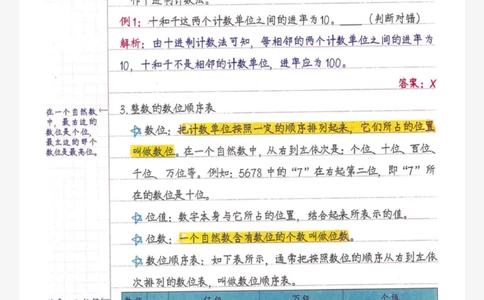 作十进制计数法。
例1：十和千这两个计数单位之间的进率为10。____（判断对错）
解析：由十进制计数法可知，每相邻的两个计数单位之间的进率为
10，十和千不是相邻的计数单位，进率应为100。
答案：X
在一个自然数
中，最右边的
数位是个位，
最左边的那个
数位是最高位。
3.整数的数位顺序表
☆数位：把计数单位按照一定的顺序排列起来，它们所占的位置
叫做数位。在一个自然数中，从右到左依次是：个位、十位、百位、
千位、万位等。例如：5678中的“7”在右起第二位，即“7”所
在的数位是十位。
☆位值：数字本身与它所占的位置，结合起来所表示的值。
☆位数：一个自然数含有数位的个数叫做位数。
☆数位顺序表：如下表所示，通常把按照数位的顺序从右到左依
次排列的数位表，叫做数位顺序表。